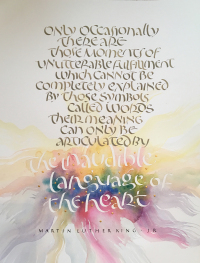 Only Occasionally
there are
those moments of
unutterable fulfillment
which cannot be
completely explained
by those symbols
called words
their meaning
can only be
articulated by
the inaudible
language of
the heart
MARTIN LUTHER KING JR